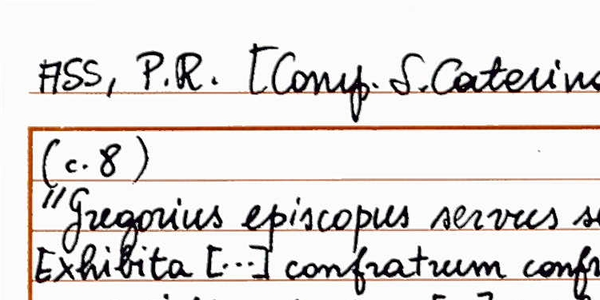 ASS, P.R. [Comp. S. Caterina
(c. 8)
"Gregorius episcopus servus
Exhibita [...] confratrum